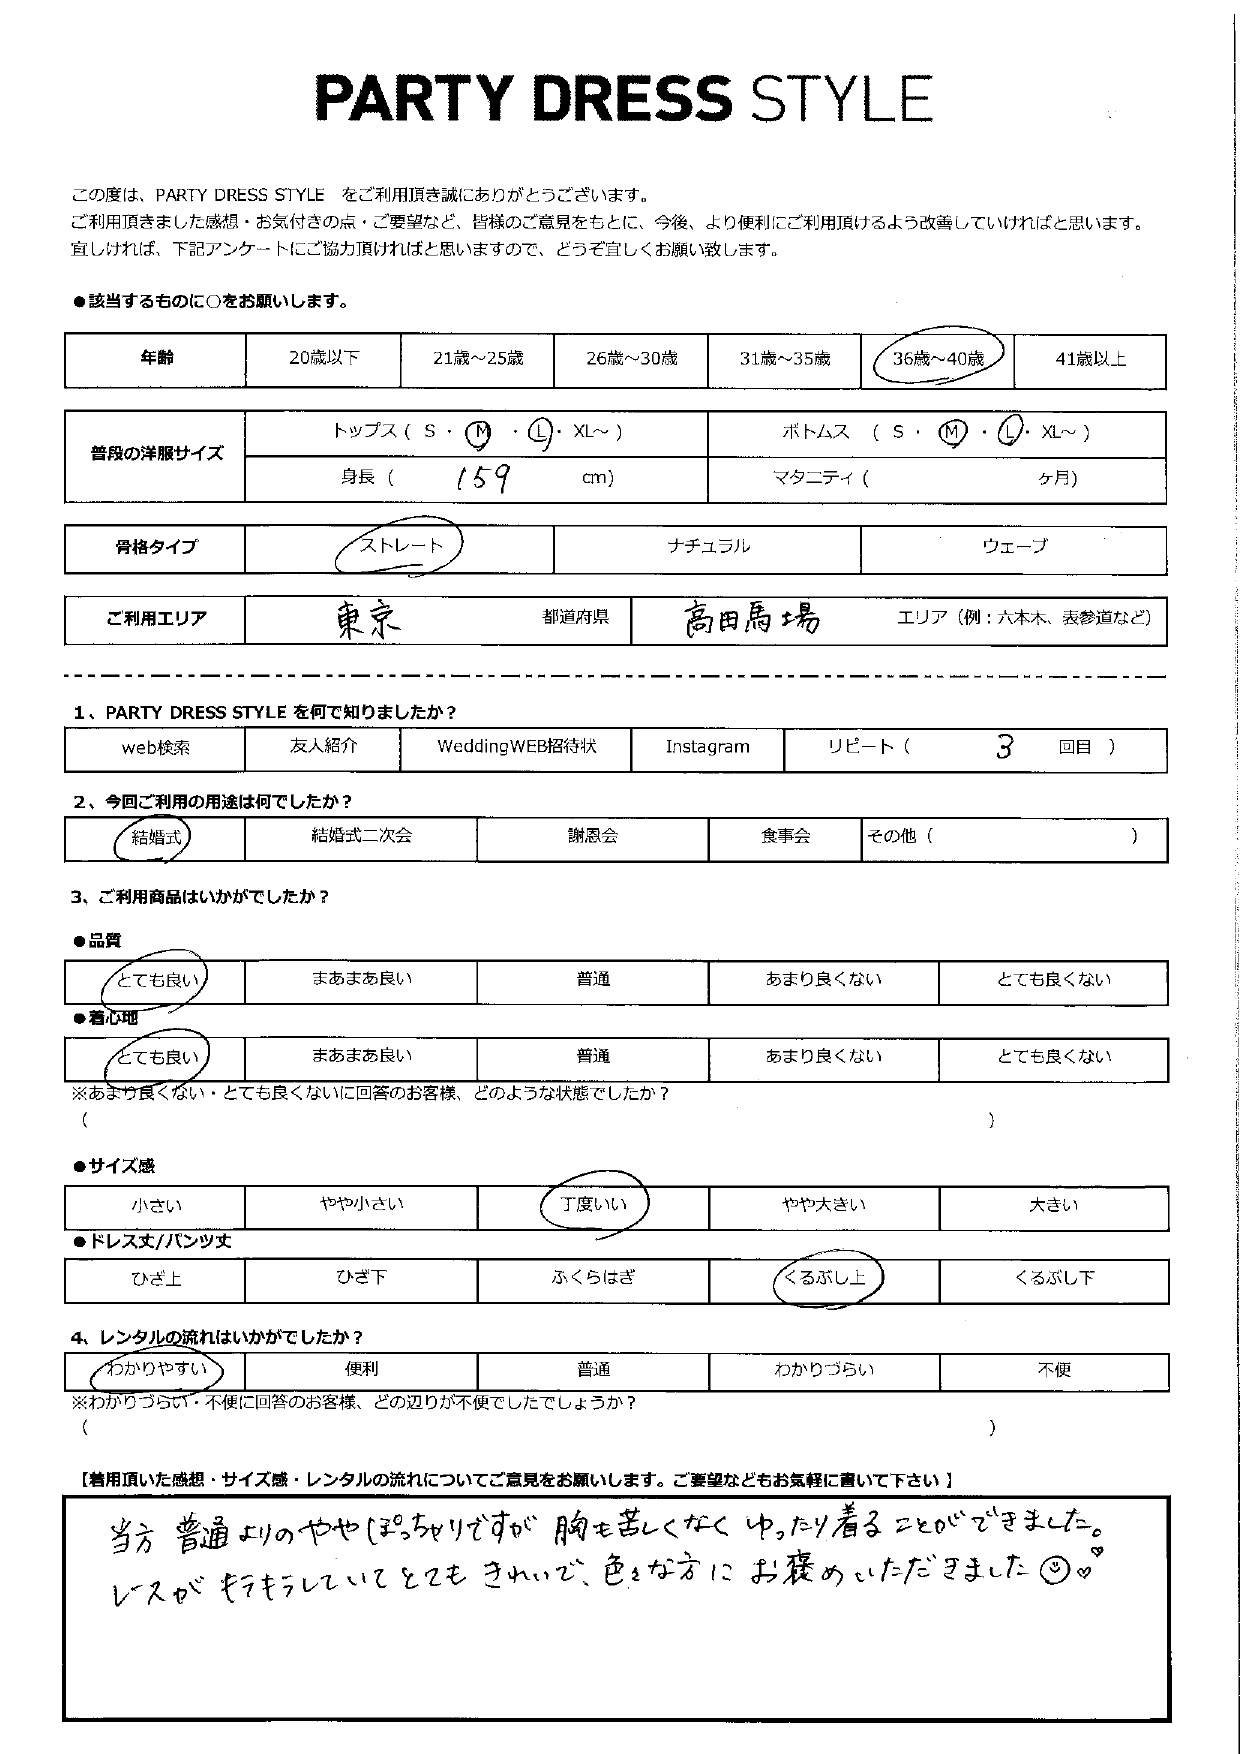 PARTY DRESS STYLE
この度は、PARTY DRESS STYLE をご利用頂き誠にありがとうございます。
ご利用頂きました感想・お気付きの点・ご要望など、皆様のご意見をもとに、今後、より便利にご利用頂けるよう改善していければと思います。
宜しければ、下記アンケートにご協力頂ければと思いますので、どうぞ宜しくお願い致します。
●該当するものに○をお願いします。
年齢 20歳以下 21歳～25歳 26歳～30歳 31歳～35歳 36歳～40歳 41歳以上
普段の洋服サイズ トップス ( S ・ M ・ L ・ XL～ ) ボトムス ( S ・ M ・ L ・ XL～ )
身長 ( 159 cm) マタニティ ( ヶ月)
骨格タイプ ストレート ナチュラル ウェーブ
ご利用エリア 東京 都道府県 高田馬場 エリア（例：六本木、表参道など）
1、PARTY DRESS STYLE を何で知りましたか？
web検索 友人紹介 WeddingWEB招待状 Instagram リピート ( 3 回目 )
2、今回ご利用の用途は何でしたか？
結婚式 結婚式二次会 謝恩会 食事会 その他 ( )
3、ご利用商品はいかがでしたか？
●品質
とても良い まあまあ良い 普通 あまり良くない とても良くない
●着心地
とても良い まあまあ良い 普通 あまり良くない とても良くない
※あまり良くない・とても良くないに回答のお客様、どのような状態でしたか？
( )
●サイズ感
小さい やや小さい 丁度いい やや大きい 大きい
●ドレス丈/パンツ丈
ひざ上 ひざ下 ふくらはぎ くるぶし上 くるぶし下
4、レンタルの流れはいかがでしたか？
わかりやすい 便利 普通 わかりづらい 不便
※わかりづらい・不便に回答のお客様、どの辺りが不便でしたでしょうか？
( )
【着用頂いた感想・サイズ感・レンタルの流れについてご意見をお願いします。ご要望などもお気軽に書いて下さい】
当方 普通よりのややぽっちゃりですが 胸も苦しくなく ゆったり着ることができました。
レースが キラキラしていて とても きれいで、色々な方に お褒めいただきました